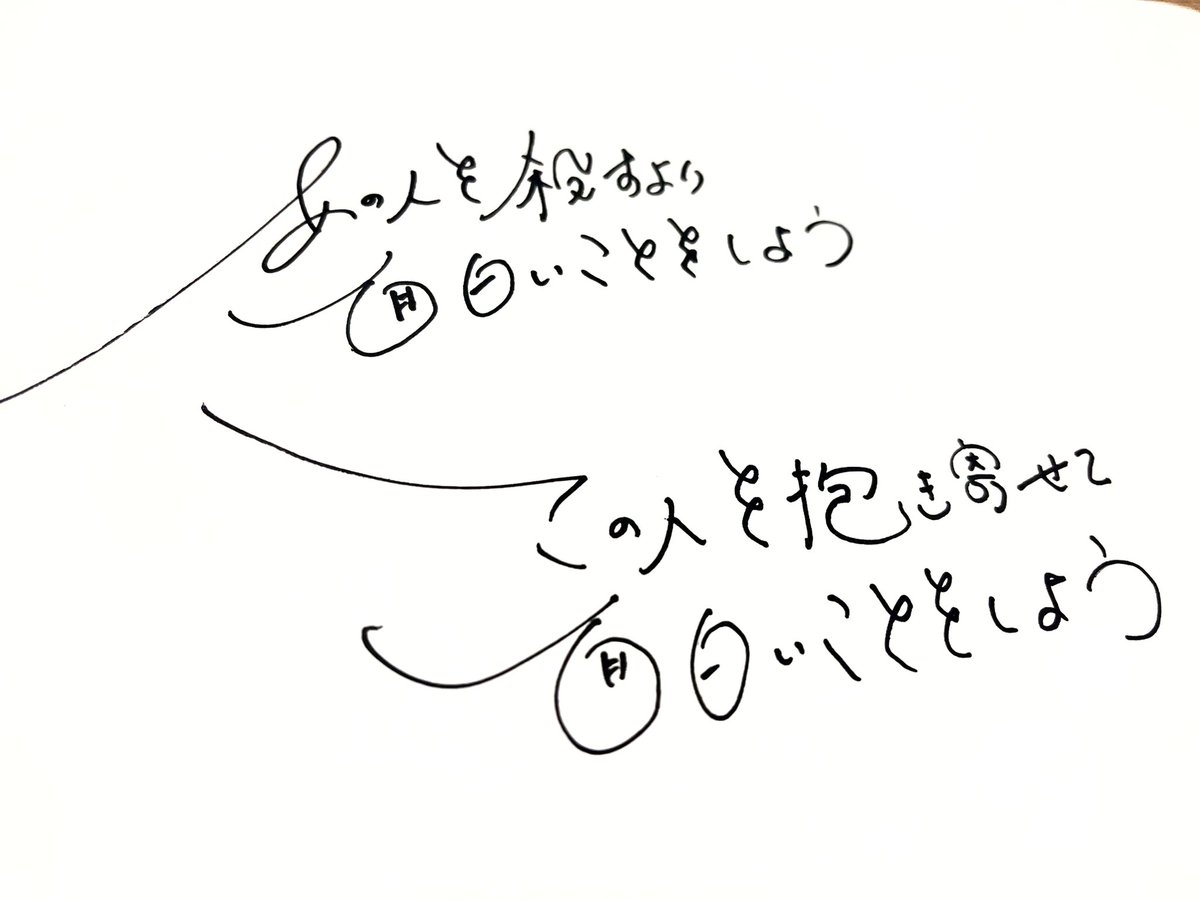 あの人を殺すより
面白いことをしよう
この人を抱き寄せて
面白いことをしよう